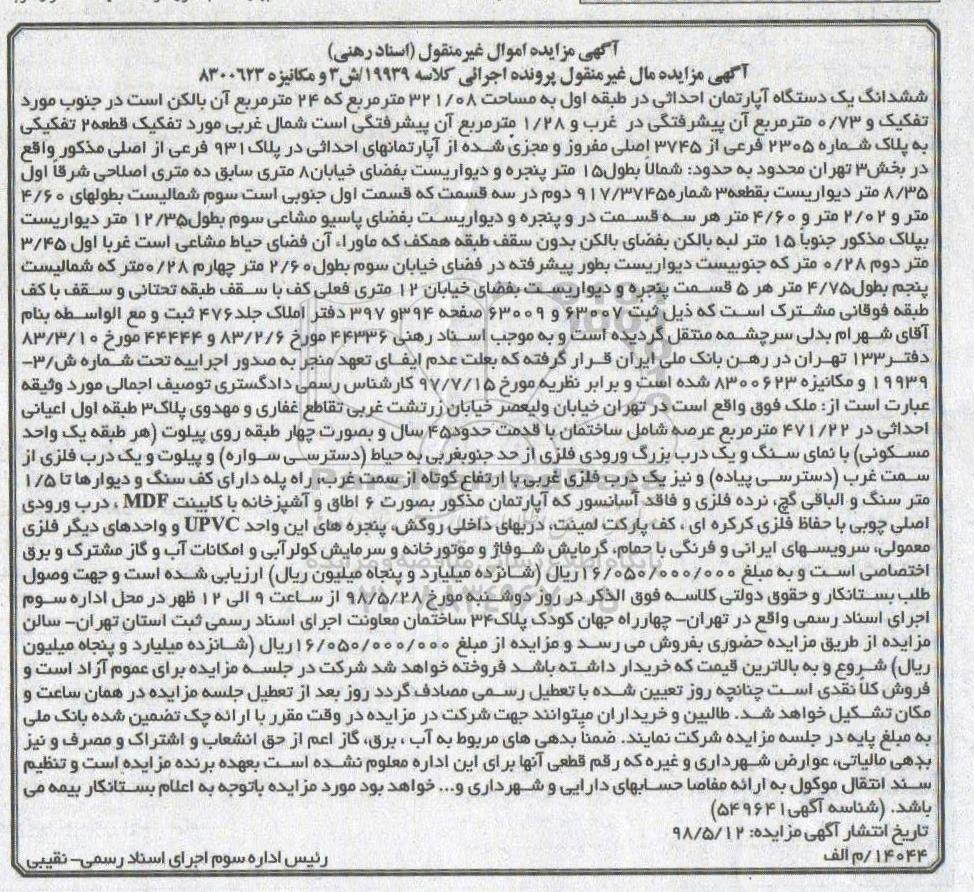 آگهی مزایده اموال غیرمنقول (اسناد رهنی)
آگهی مزایده مال غیرمنقول پرونده اجرائی کلاسه ۱۹۹۳۹/ش۳ و مکانیزه ۸۳۰۰۶۲۳
ششدانگ یک دستگاه آپارتمان احداثی در طبقه اول به مساحت ۳۲۱/۰۸ مترمربع که ۲۴ مترمربع آن بالکن است در جنوب مورد
تفکیک و ۰/۷۳ مترمربع آن پیشرفتگی در غرب و ۱/۲۸ مترمربع آن پیشرفتگی است شمال غربی مورد تفکیک قطعه۲ تفکیکی
به پلاک شماره ۲۳۰۵ فرعی از ۳۷۴۵ اصلی مفروز و مجزی شده از آپارتمانهای احداثی در پلاک۹۳۱ فرعی از اصلی مذکور واقع
در بخش۳ تهران محدود به حدود: شمالاً بطول۱۵ متر پنجره و دیواریست بفضای خیابان۸ متری سابق ده متری اصلاحی شرقا اول
۸/۳۵ متر دیواریست بقطعه۳ شماره۹۱۷/۳۷۴۵ دوم در سه قسمت که قسمت اول جنوبی است سوم شمالیست بطولهای ۴/۶۰
متر و ۲/۰۲ متر و ۴/۶۰ متر هر سه قسمت در و پنجره و دیواریست بفضای پاسیو مشاعی سوم بطول۱۲/۳۵ متر دیواریست
بپلاک مذکور جنوباً ۱۵ متر لبه بالکن بفضای بالکن بدون سقف طبقه همکف که ماوراء آن فضای حیاط مشاعی است غربا اول ۳/۴۵
متر دوم ۰/۲۸ متر که جنوبیست دیواریست بطور پیشرفته در فضای خیابان سوم بطول۲/۶۰ متر چهارم ۰/۲۸متر که شمالیست
پنجم بطول۴/۷۵ متر هر ۵ قسمت پنجره و دیواریست بفضای خیابان ۱۲ متری فعلی کف با سقف طبقه تحتانی و سقف با کف
طبقه فوقانی مشترک است که ذیل ثبت ۶۳۰۰۷ و ۶۳۰۰۹ صفحه ۳۹۴و ۳۹۷ دفتر املاک جلد۴۷۶ ثبت و مع الواسطه بنام
آقای شهرام بدلی سرچشمه منتقل گردیده است و به موجب اسناد رهنی ۴۴۳۳۶ مورخ ۸۳/۲/۶ و ۴۴۴۴۴ مورخ ۸۳/۳/۱۰
دفتر۱۳۳ تهران در رهن بانک ملی ایران قرار گرفته که بعلت عدم ایفای تعهد منجر به صدور اجراییه تحت شماره ش/۳-
۱۹۹۳۹ و مکانیزه ۸۳۰۰۶۲۳ شده است و برابر نظریه مورخ ۹۷/۷/۱۵ کارشناس رسمی دادگستری توصیف اجمالی مورد وثیقه
عبارت است از: ملک فوق واقع است در تهران خیابان ولیعصر خیابان زرتشت غربی تقاطع غفاری و مهدوی پلاک۳ طبقه اول اعیانی
احداثی در ۴۷۱/۲۲ مترمربع عرصه شامل ساختمان با قدمت حدود۴۵ سال و بصورت چهار طبقه روی پیلوت (هر طبقه یک واحد
مسکونی) با نمای سنگ و یک درب بزرگ ورودی فلزی از حد جنوبغربی به حیاط (دسترسی سواره) و پیلوت و یک درب فلزی از
سمت غرب (دسترسی پیاده) و نیز یک درب فلزی غربی با ارتفاع کوتاه از سمت غرب، راه پله دارای کف سنگ و دیوارها تا ۱/۵
متر سنگ و الباقی گچ، نرده فلزی و فاقد آسانسور که آپارتمان مذکور بصورت ۶ اطاق و آشپزخانه با کابینت MDF ، درب ورودی
اصلی چوبی با حفاظ فلزی کرکره ای ، کف پارکت لمینت، دربهای داخلی روکش، پنجره های این واحد UPVC و واحدهای دیگر فلزی
معمولی، سرویسهای ایرانی و فرنگی با حمام، گرمایش شوفاژ و موتورخانه و سرمایش کولرآبی و امکانات آب و گاز مشترک و برق
اختصاصی است و به مبلغ ۱۶/۰۵۰/۰۰۰/۰۰۰ریال (شانزده میلیارد و پنجاه میلیون ریال) ارزیابی شده است و جهت وصول
طلب بستانکار و حقوق دولتی کلاسه فوق الذکر در روز دوشنبه مورخ ۹۸/۵/۲۸ از ساعت ۹ الی ۱۲ ظهر در محل اداره سوم
اجرای اسناد رسمی واقع در تهران- چهارراه جهان کودک پلاک۳۴ ساختمان معاونت اجرای اسناد رسمی ثبت استان تهران- سالن
مزایده از طریق مزایده حضوری بفروش می رسد و مزایده از مبلغ ۱۶/۰۵۰/۰۰۰/۰۰۰ریال (شانزده میلیارد و پنجاه میلیون
ریال) شروع و به بالاترین قیمت که خریدار داشته باشد فروخته خواهد شد شرکت در جلسه مزایده برای عموم آزاد است و
فروش کلاً نقدی است چنانچه روز تعیین شده با تعطیل رسمی مصادف گردد روز بعد از تعطیل جلسه مزایده در همان ساعت و
مکان تشکیل خواهد شد. طالبین و خریداران میتوانند جهت شرکت در مزایده در وقت مقرر با ارائه چک تضمین شده بانک ملی
به مبلغ پایه در جلسه مزایده شرکت نمایند. ضمناً بدهی های مربوط به آب ، برق، گاز اعم از حق انشعاب و اشتراک و مصرف و نیز
بدهی مالیاتی، عوارض شهرداری و غیره که رقم قطعی آنها برای این اداره معلوم نشده است بعهده برنده مزایده است و تنظیم
سند انتقال موکول به ارائه مفاصا حسابهای دارایی و شهرداری و... خواهد بود مورد مزایده باتوجه به اعلام بستانکار بیمه می
باشد. (شناسه آگهی۵۴۹۶۴۱)
تاریخ انتشار آگهی مزایده: ۹۸/۵/۱۲
۱۴۰۴۴/م الف
رئیس اداره سوم اجرای اسناد رسمی- نقیبی